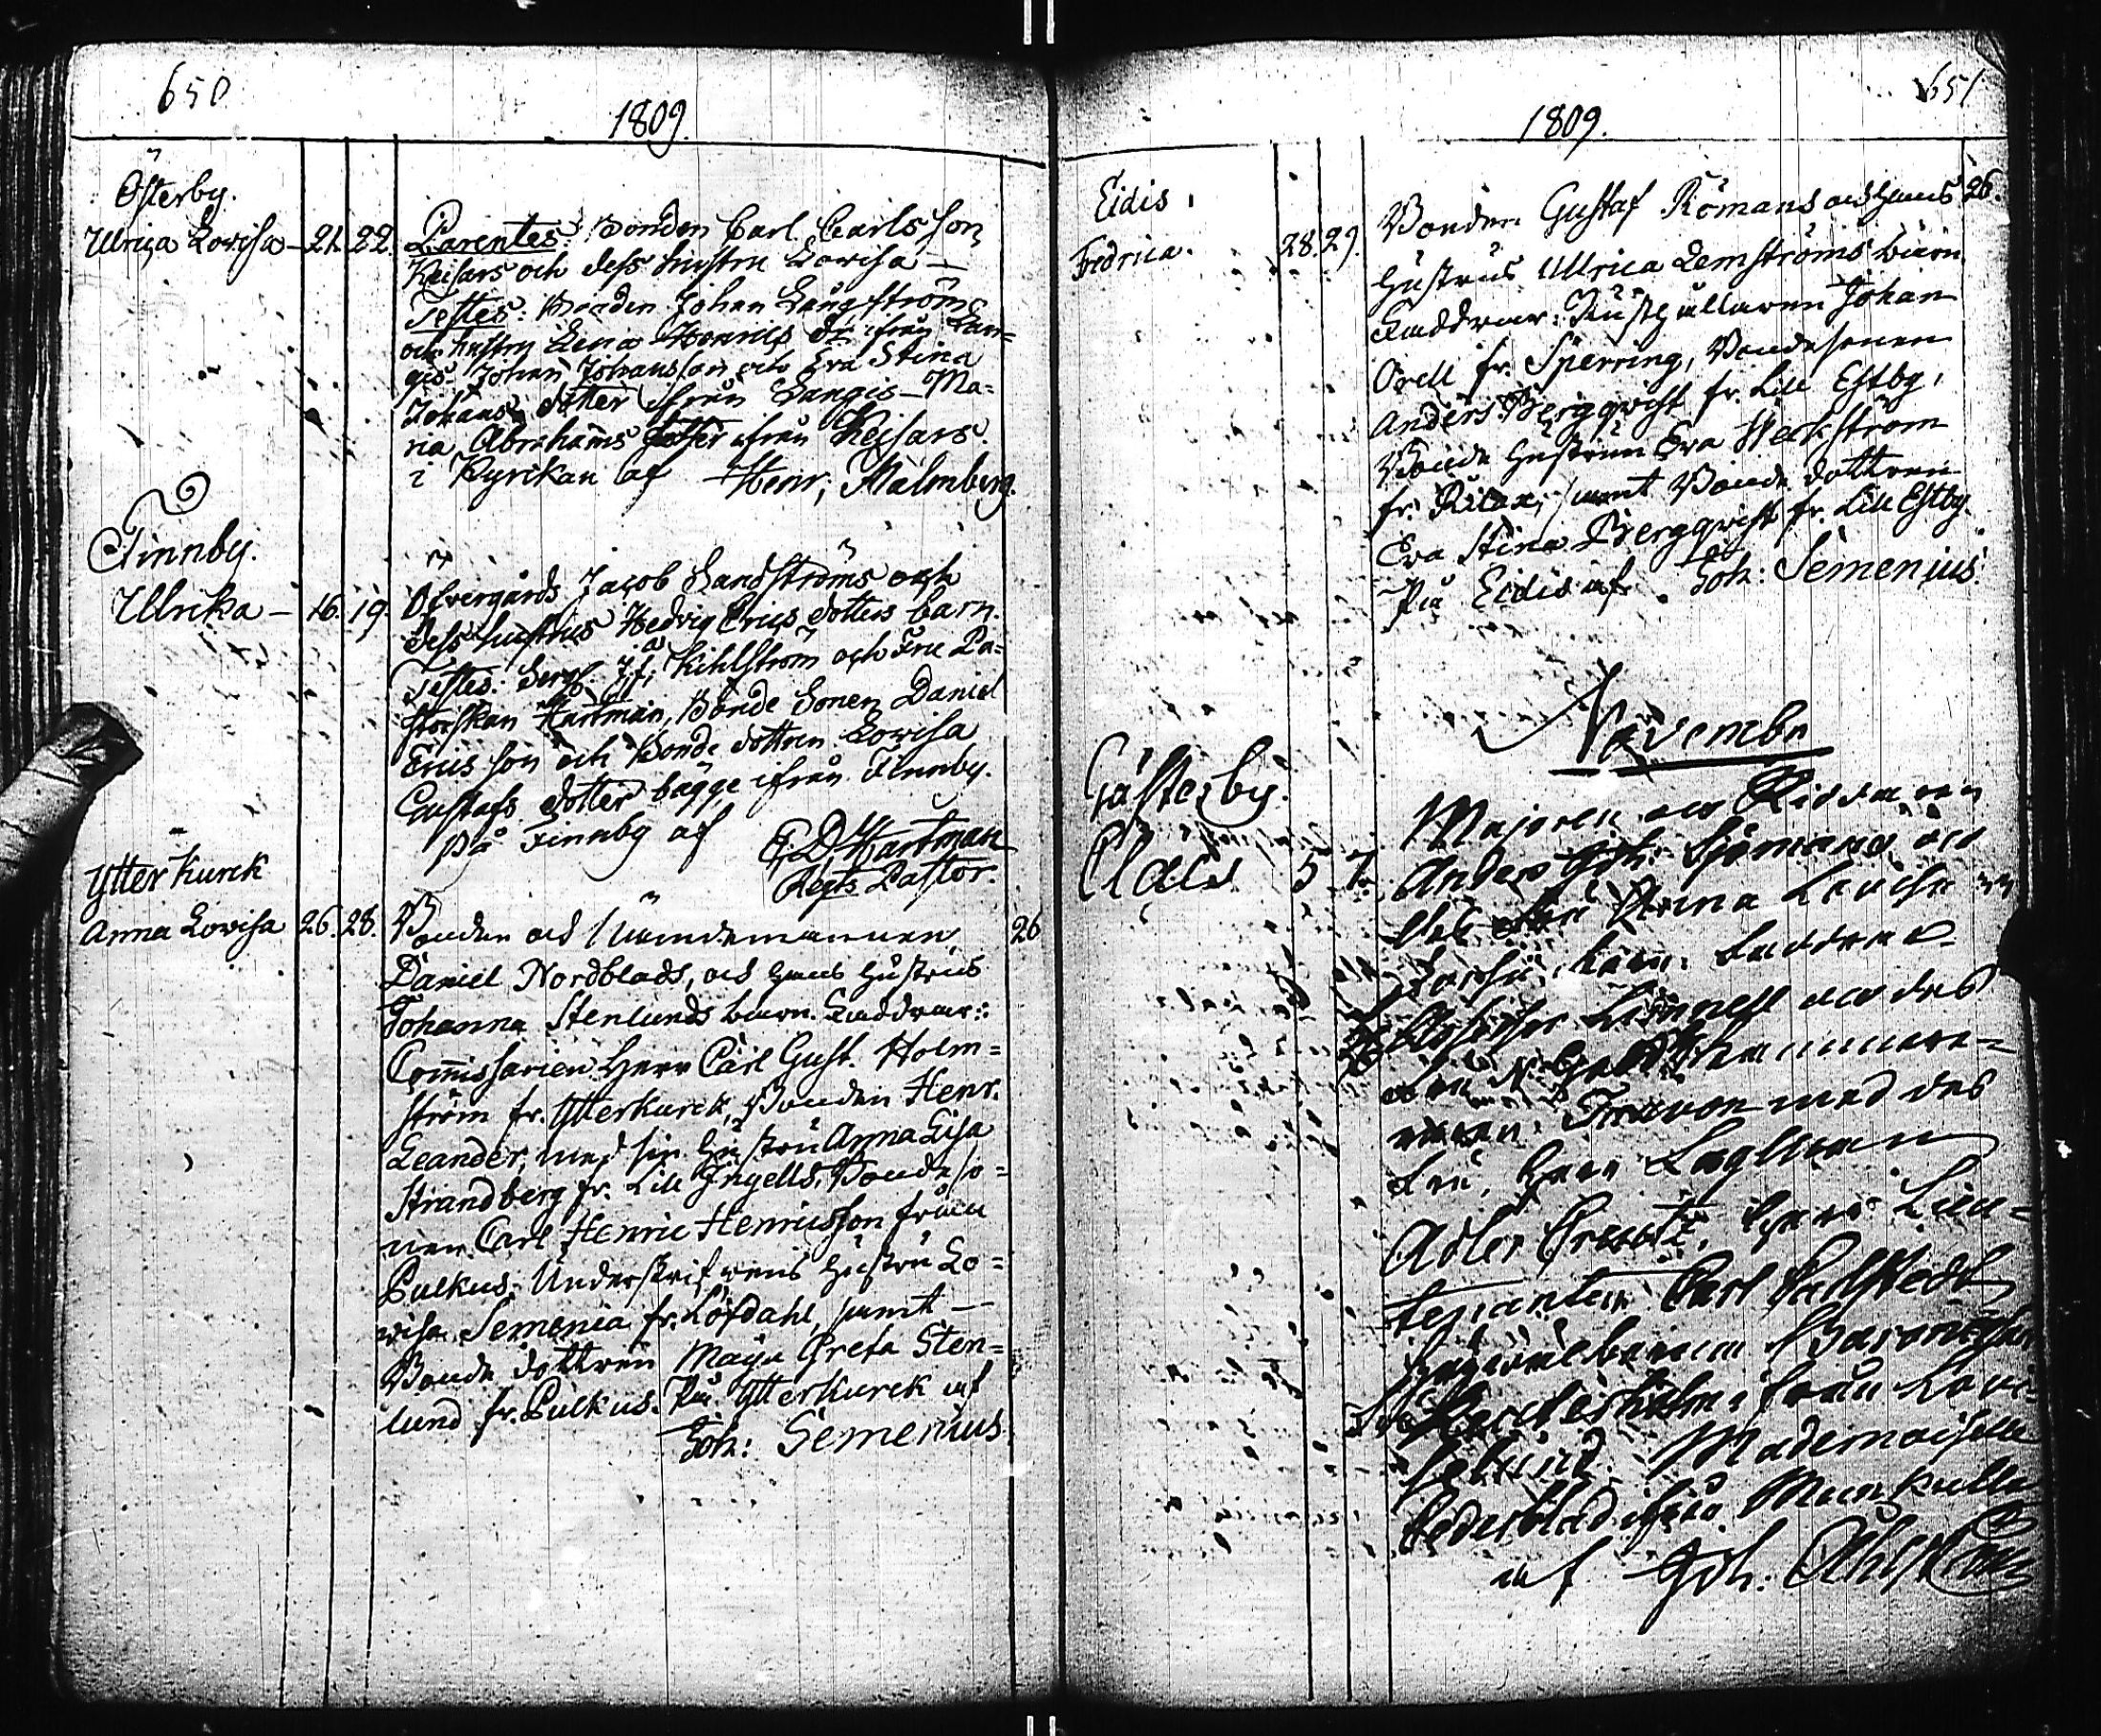 650
1809.
Österby.
Ulrica Lovisa – 21. 22. Parentes: Bonden Carl Carlsson
Keisars och dess hustru Lovisa –
Testes: Bonden Johan Långström
och hustru Lena Henrics dr ifrån Lan=
gis – Johan Johansson och Eva Stina
Johans dotter ifrån Langis – Ma=
ria Abrahams dotter ifrån Keisars.
i Kyrkan af Henr; Malmberg.
Finnby.
Ulrika – 16. 19. Öfvergårds Jacob Sandströms och
dess hustrus Hedvig Erics dotters barn.
Testes: Serg. Kihlström och Fru Pa=
storskan Hartman, Bonde Sonen Daniel
Ericsson och Bonde dottren Lovisa
Gustafs dotter bägge ifrån Finnby.
på Finnby af E. D. Hartman
Regts Pastor.
Ytter Kurck
Anna Lovisa 26. 28. Bonden och Nämndemannen 26
Daniel Nordblads, och hans hustrus
Johanna Stenlunds barn. Faddrar:
Commissarien Herr Carl Gust. Holm=
ström fr. Ytterkurck, Bonden Henr.
Leander, med sin hustru Anna Lisa
Strandberg fr. Lill Ingells, Bondeso=
nen Carl Henric Henricsson från
Pulkus. Underskrifvens hustru Lo=
visa Semenia fr. Löfdahl, samt –
Bonde dottren Maja Greta Sten=
lund fr. Pulkus. På Ytterkurck af
Joh: Semenius.
651
1809.
Eidis,
Fredrica. 28. 29. Bonden Gustaf Römans och hans 26.
hustrus Ullrica Lemströms barn
Faddrar: Rusthållaren Johan
Orell fr. Sperring, Bondesonen
Anders Bergqvist fr. Lill Estby,
Bonde hustrun Eva Weckström
fr. Rilax, samt Bonde dottren
Eva Stina Bergqvist fr. Lill Estby.
På Eidis af Joh: Semenius.
Novembr
Gästerby.
5 7. Majoren och Riddaren
Anders Joh: Sjömans och
Anna Lovisa
barn. Faddrar
och des
Fru
med des
Fru, Herr Lagman
Adler Creutz, Herr Lieu=
tenanten Carl
ifrån Lovi=
selund Mademoiselle
Cederblad ifrån Munkulla
af Joh: Ahlström